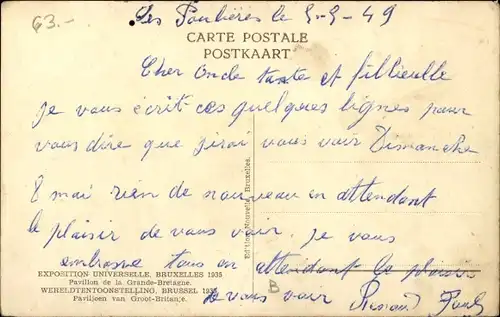 63.-
Les le 5-5-49
CARTE POSTALE
POSTKAART
Cher Oncle tante et fillieulle
je vous écrit ces quelques lignes pour
vous dire que j'irai vous voir Dimanche
8 mai rien de nouveau en attendant
le plaisir de vous voir. je vous
embrasse tous en attendant le plaisir
de vous voir
Edition Nouvelle, Bruxelles.
EXPOSITION UNIVERSELLE, BRUXELLES 1935
Pavillon de la Grande-Bretagne.
WERELDTENTOONSTELLING, BRUSSEL 1935
Paviljoen van Groot-Britanje.
B